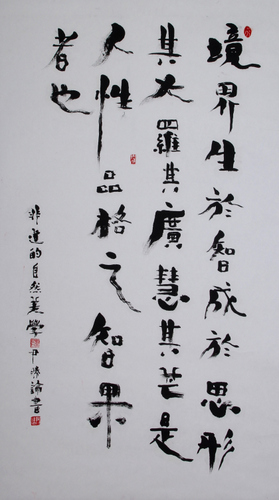 境界生於智成於思形
其大羅其廣慧其芒是
人性品格之智果
者也
非道的自然美學 尹沛諭書